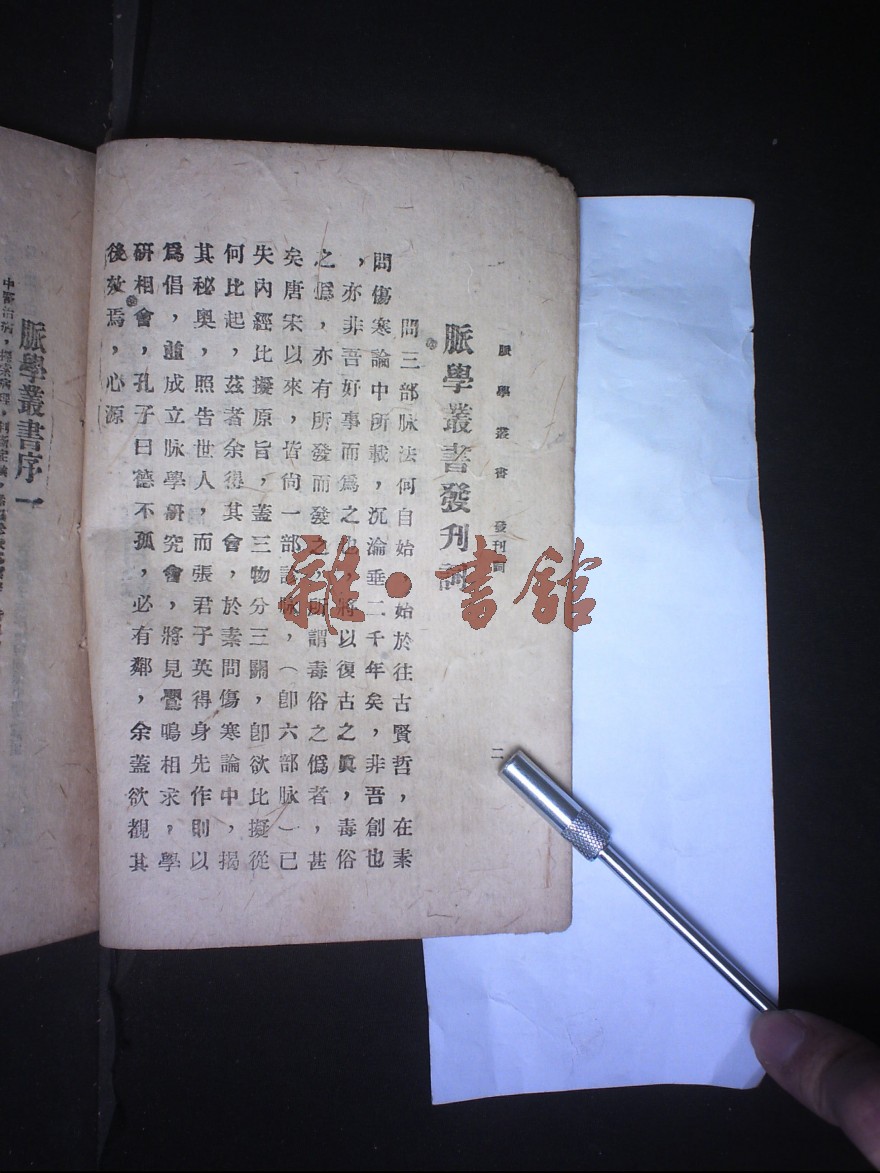 脈學叢書　發刊詞
二
脈學叢書發刊詞
問三部脉法何自始，始於往古賢哲，在素
問傷寒論中所載，沉淪垂二千年矣，非吾創也
，亦非吾好事而爲之也，將以復古之眞，毒俗
之僞，亦有所發而發之，所謂毒俗之僞者，甚
矣唐宋以來，皆尙一部診脉，（卽六部脉一已
失內經比擬原旨，蓋三物分三關，卽欲比擬從
何比起，茲者余得其會，於素問傷寒論中，揭
其秘奥，照告世人，而張君子英得身先作則以
爲倡，並成立脉學硏究會，將見嚶鳴相求，學
硏相會，孔子曰德不孤，必有鄰，余蓋欲觀其
後效焉，心源
脈學叢書序一
雜·書館